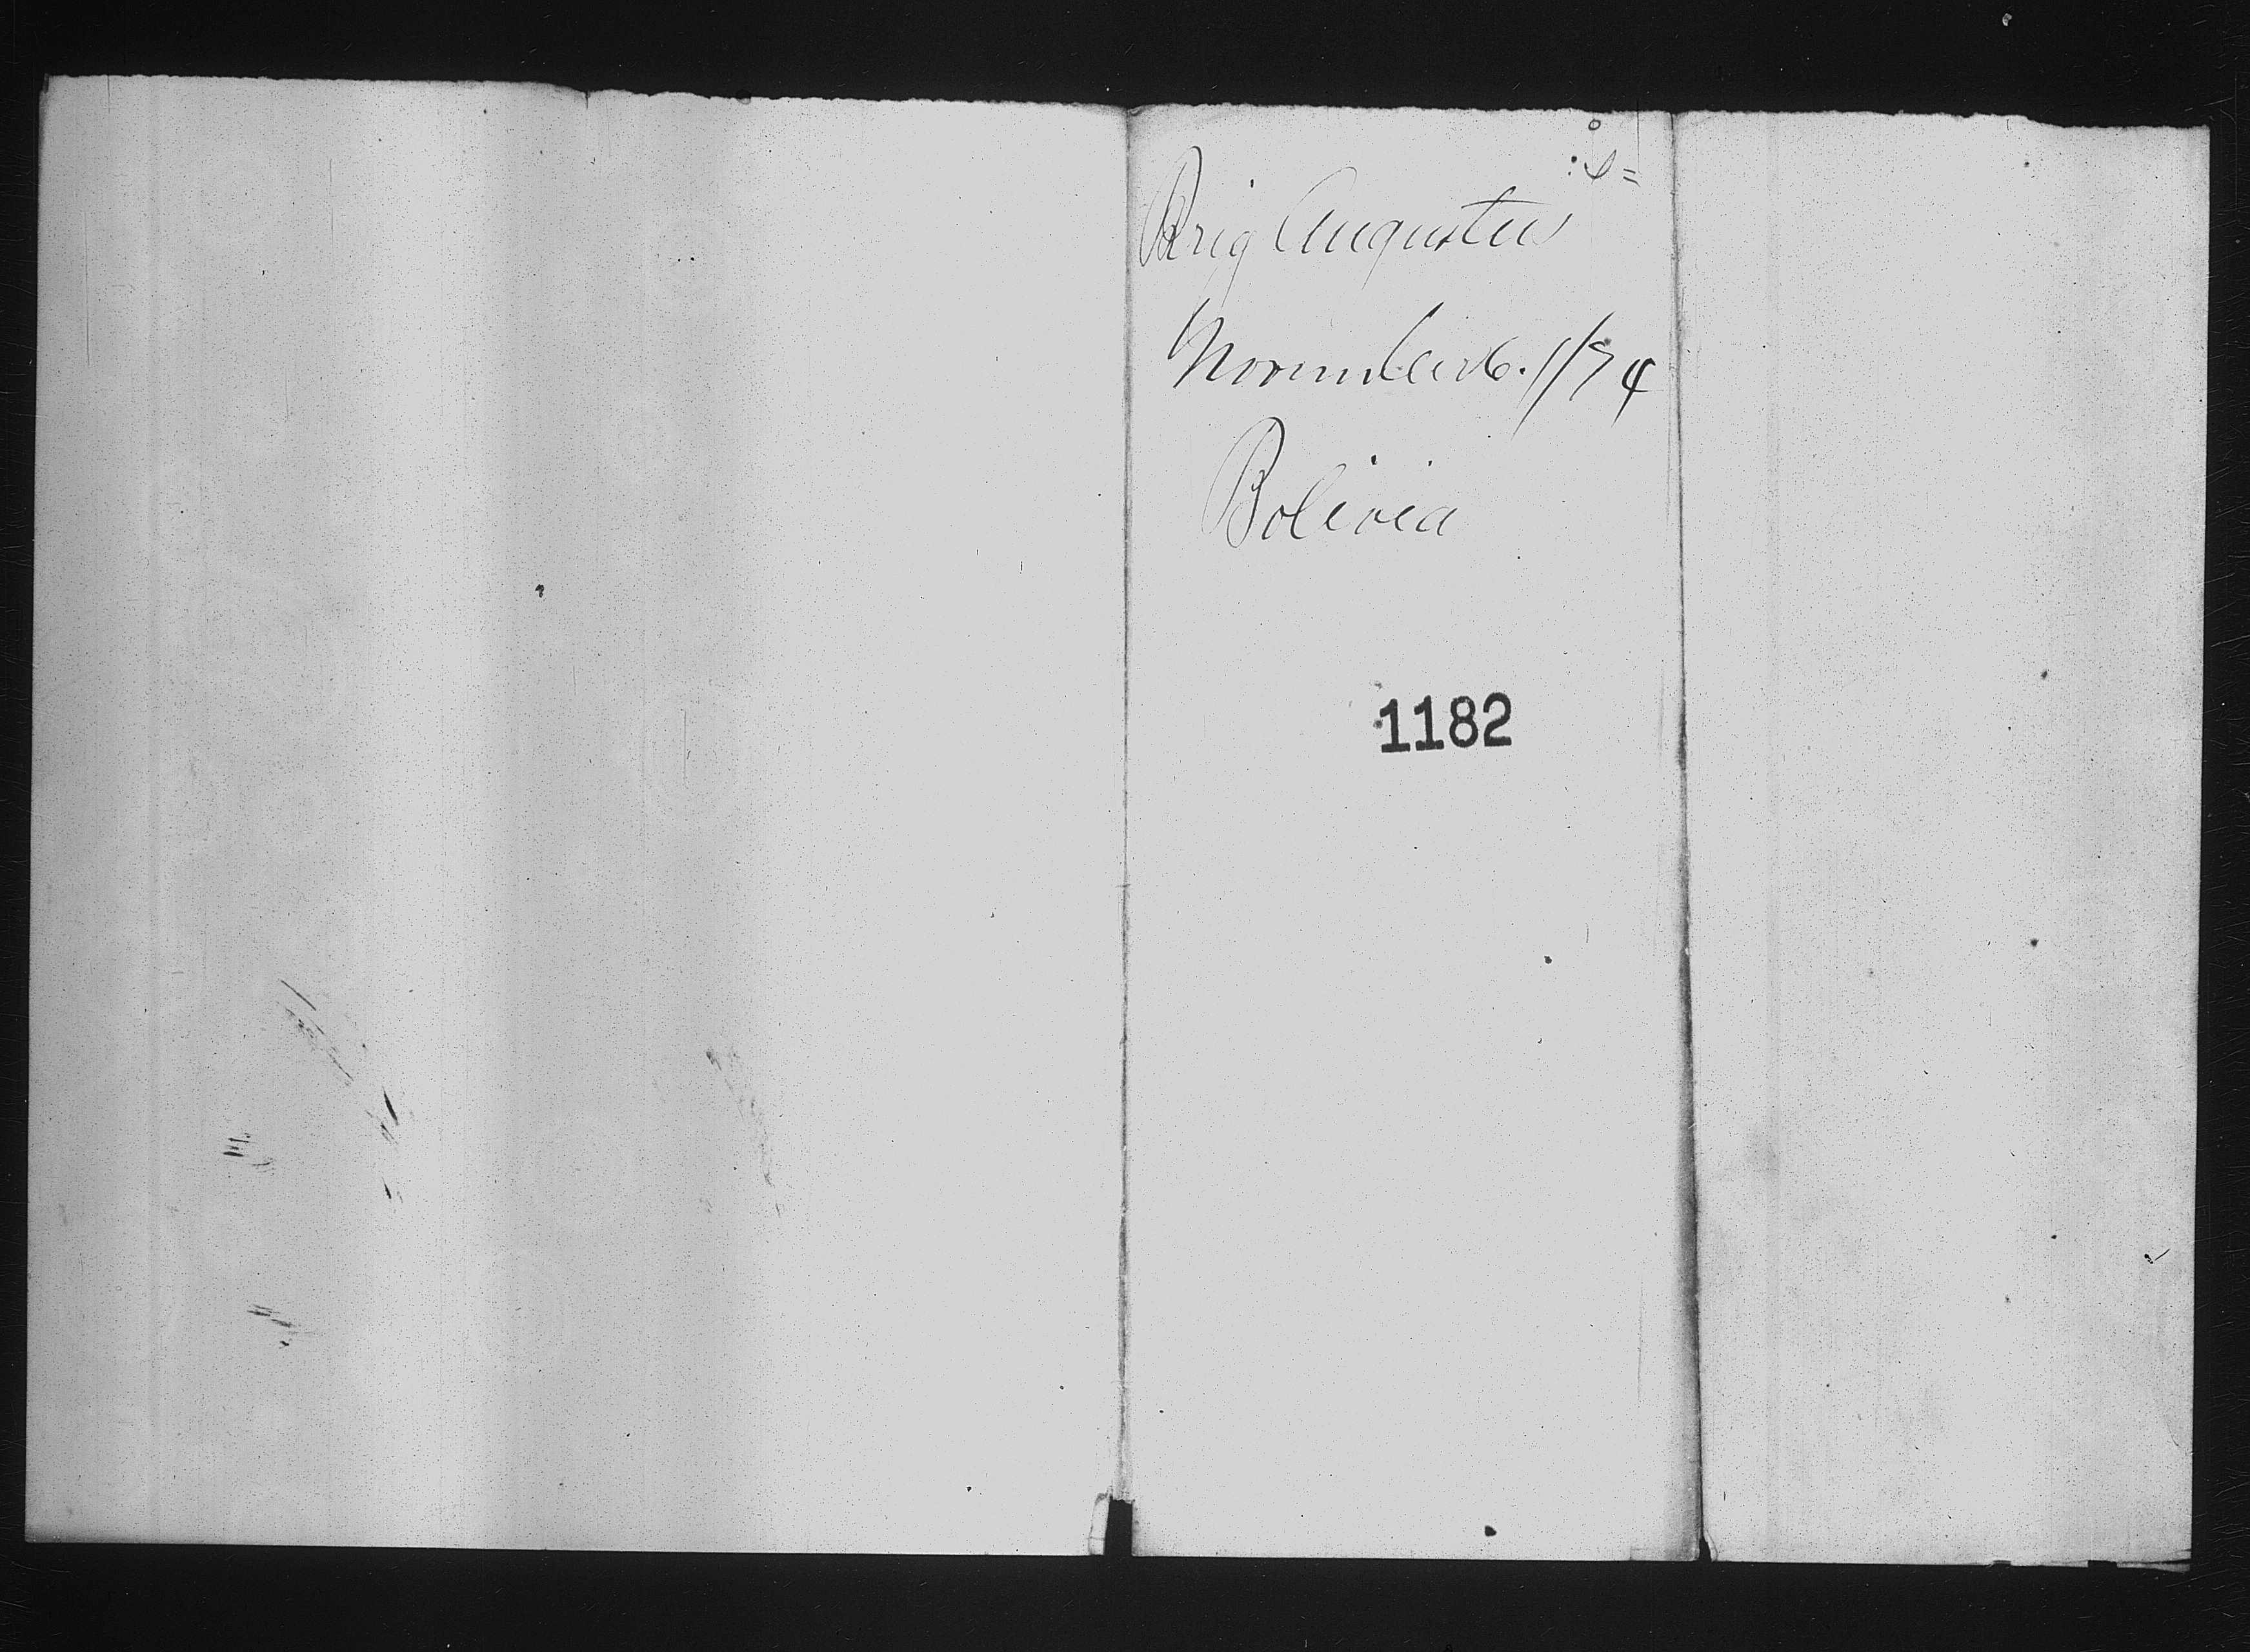 Brig Augustus
November 26. 1874
Bolivia
1182